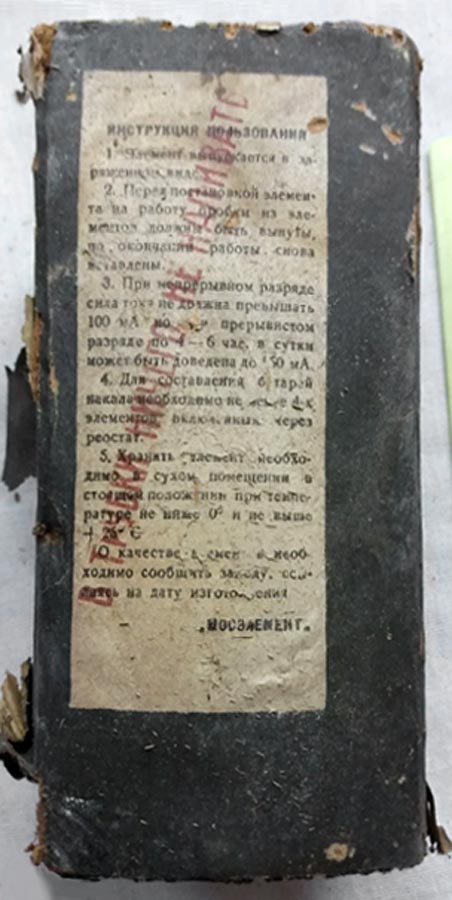 ИНСТРУКЦИЯ ПОЛЬЗОВАНИЯ
1. Элемент выпускается в за-
ряженном виде.
2. Перед постановкой элемен-
та на работу пробки из эле-
ментов должны быть вынуты,
по окончании работы снова
вставлены.
3. При непрерывном разряде
сила тока не должна превышать
100 мА но при прерывистом
разряде по 4—6 час. в сутки
может быть доведена до 150 мА.
4. Для составления батарей
накала необходимо не менее 4-х
элементов включенных через
реостат.
5. Хранить элемент необхо-
димо в сухом помещении в
стоящем положении при темпе-
ратуре не ниже 0° и не выше
+ 25° С
О качестве необ-
ходимо сообщить заводу, ссы-
лаясь на дату изготовления
„МОСЭЛЕМЕНТ“
НИЧЕГО НЕ НАЛИВАТЬ